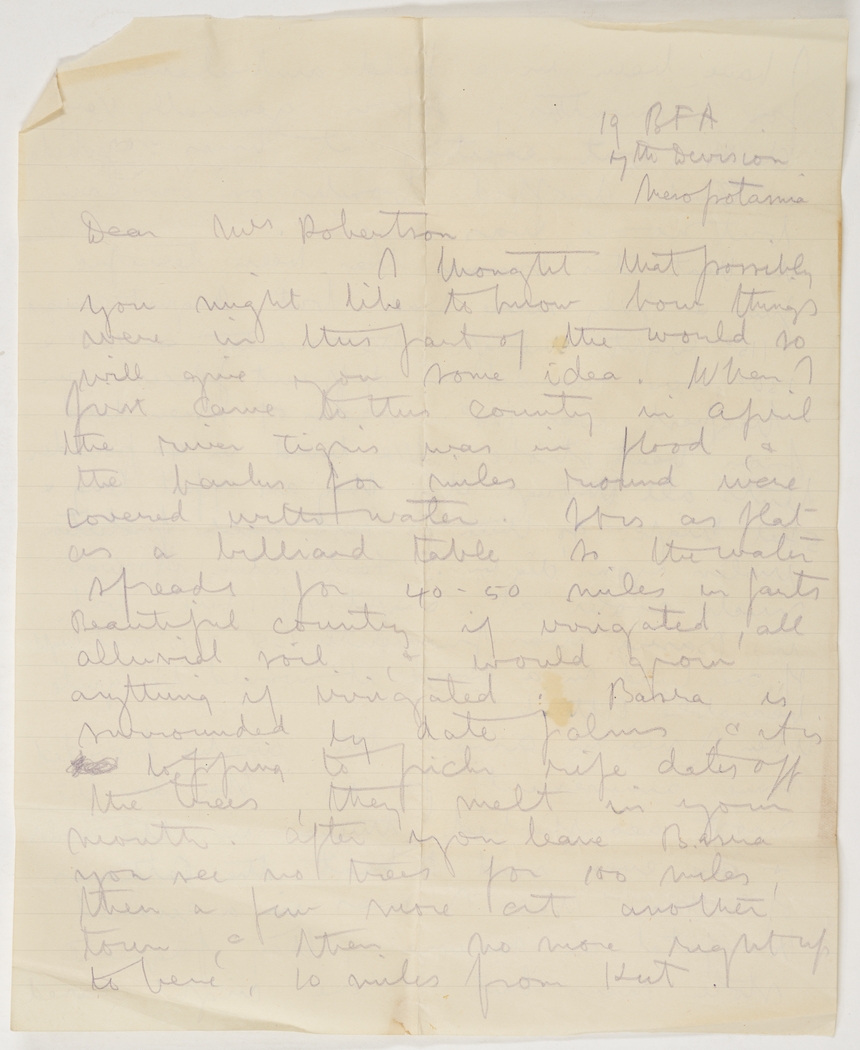 19 BFA
7th Division
Mesopotamia
Dear Mrs Robertson
I thought that possibly
you might like to know how things
were in this part of the would so
will give you some idea. When I
first came to this country in april
the river Tigris was in flood &
the banks for miles round were
covered with water. Its as flat
as a billiard table so the water
spreads for 40-50 miles in parts
Beautiful country if irrigated, all
alluvial soil, & would grow
anything if irrigated. Basra is
surrounded by date palms & it is
topping to pick ripe dates off
the trees, they melt in your
mouth. After you leave Basra
you see no trees for 100 miles,
then a few more at another
town, & then no more right up
to here, 10 miles from Kut.